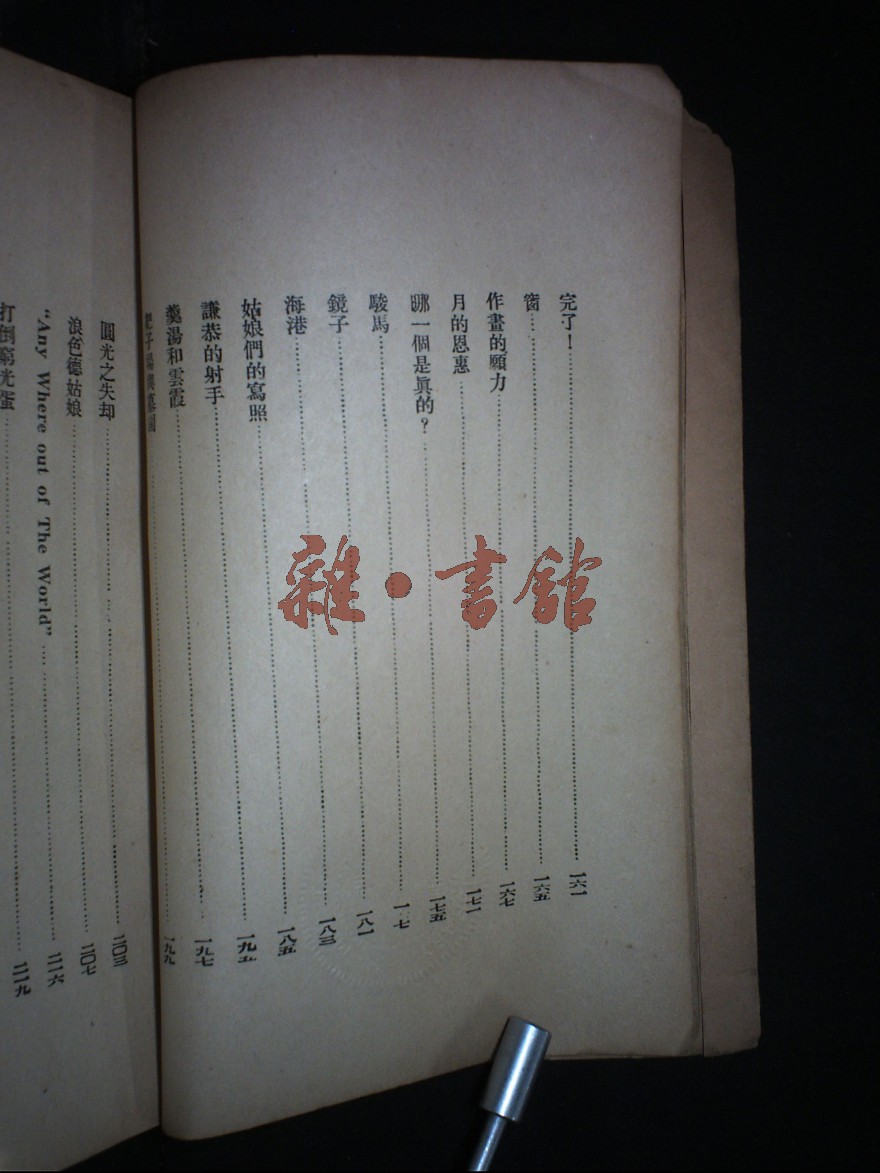 完了！……一六一
窗……一六五
作畫的願力……一六七
月的恩惠……一七一
哪一個是眞的？……一七五
駿馬……一七
鏡子……一八一
海港……一八三
姑娘們的寫照……一八五
謙恭的射手……一九五
羹湯和雲霞……一九七
子場與墓園……一九九
圓光之失却……二〇三
浪爸德姑娘……二〇七
"Any Where out of The World"……二一六
打倒窮光蛋……二一九
雜·書館